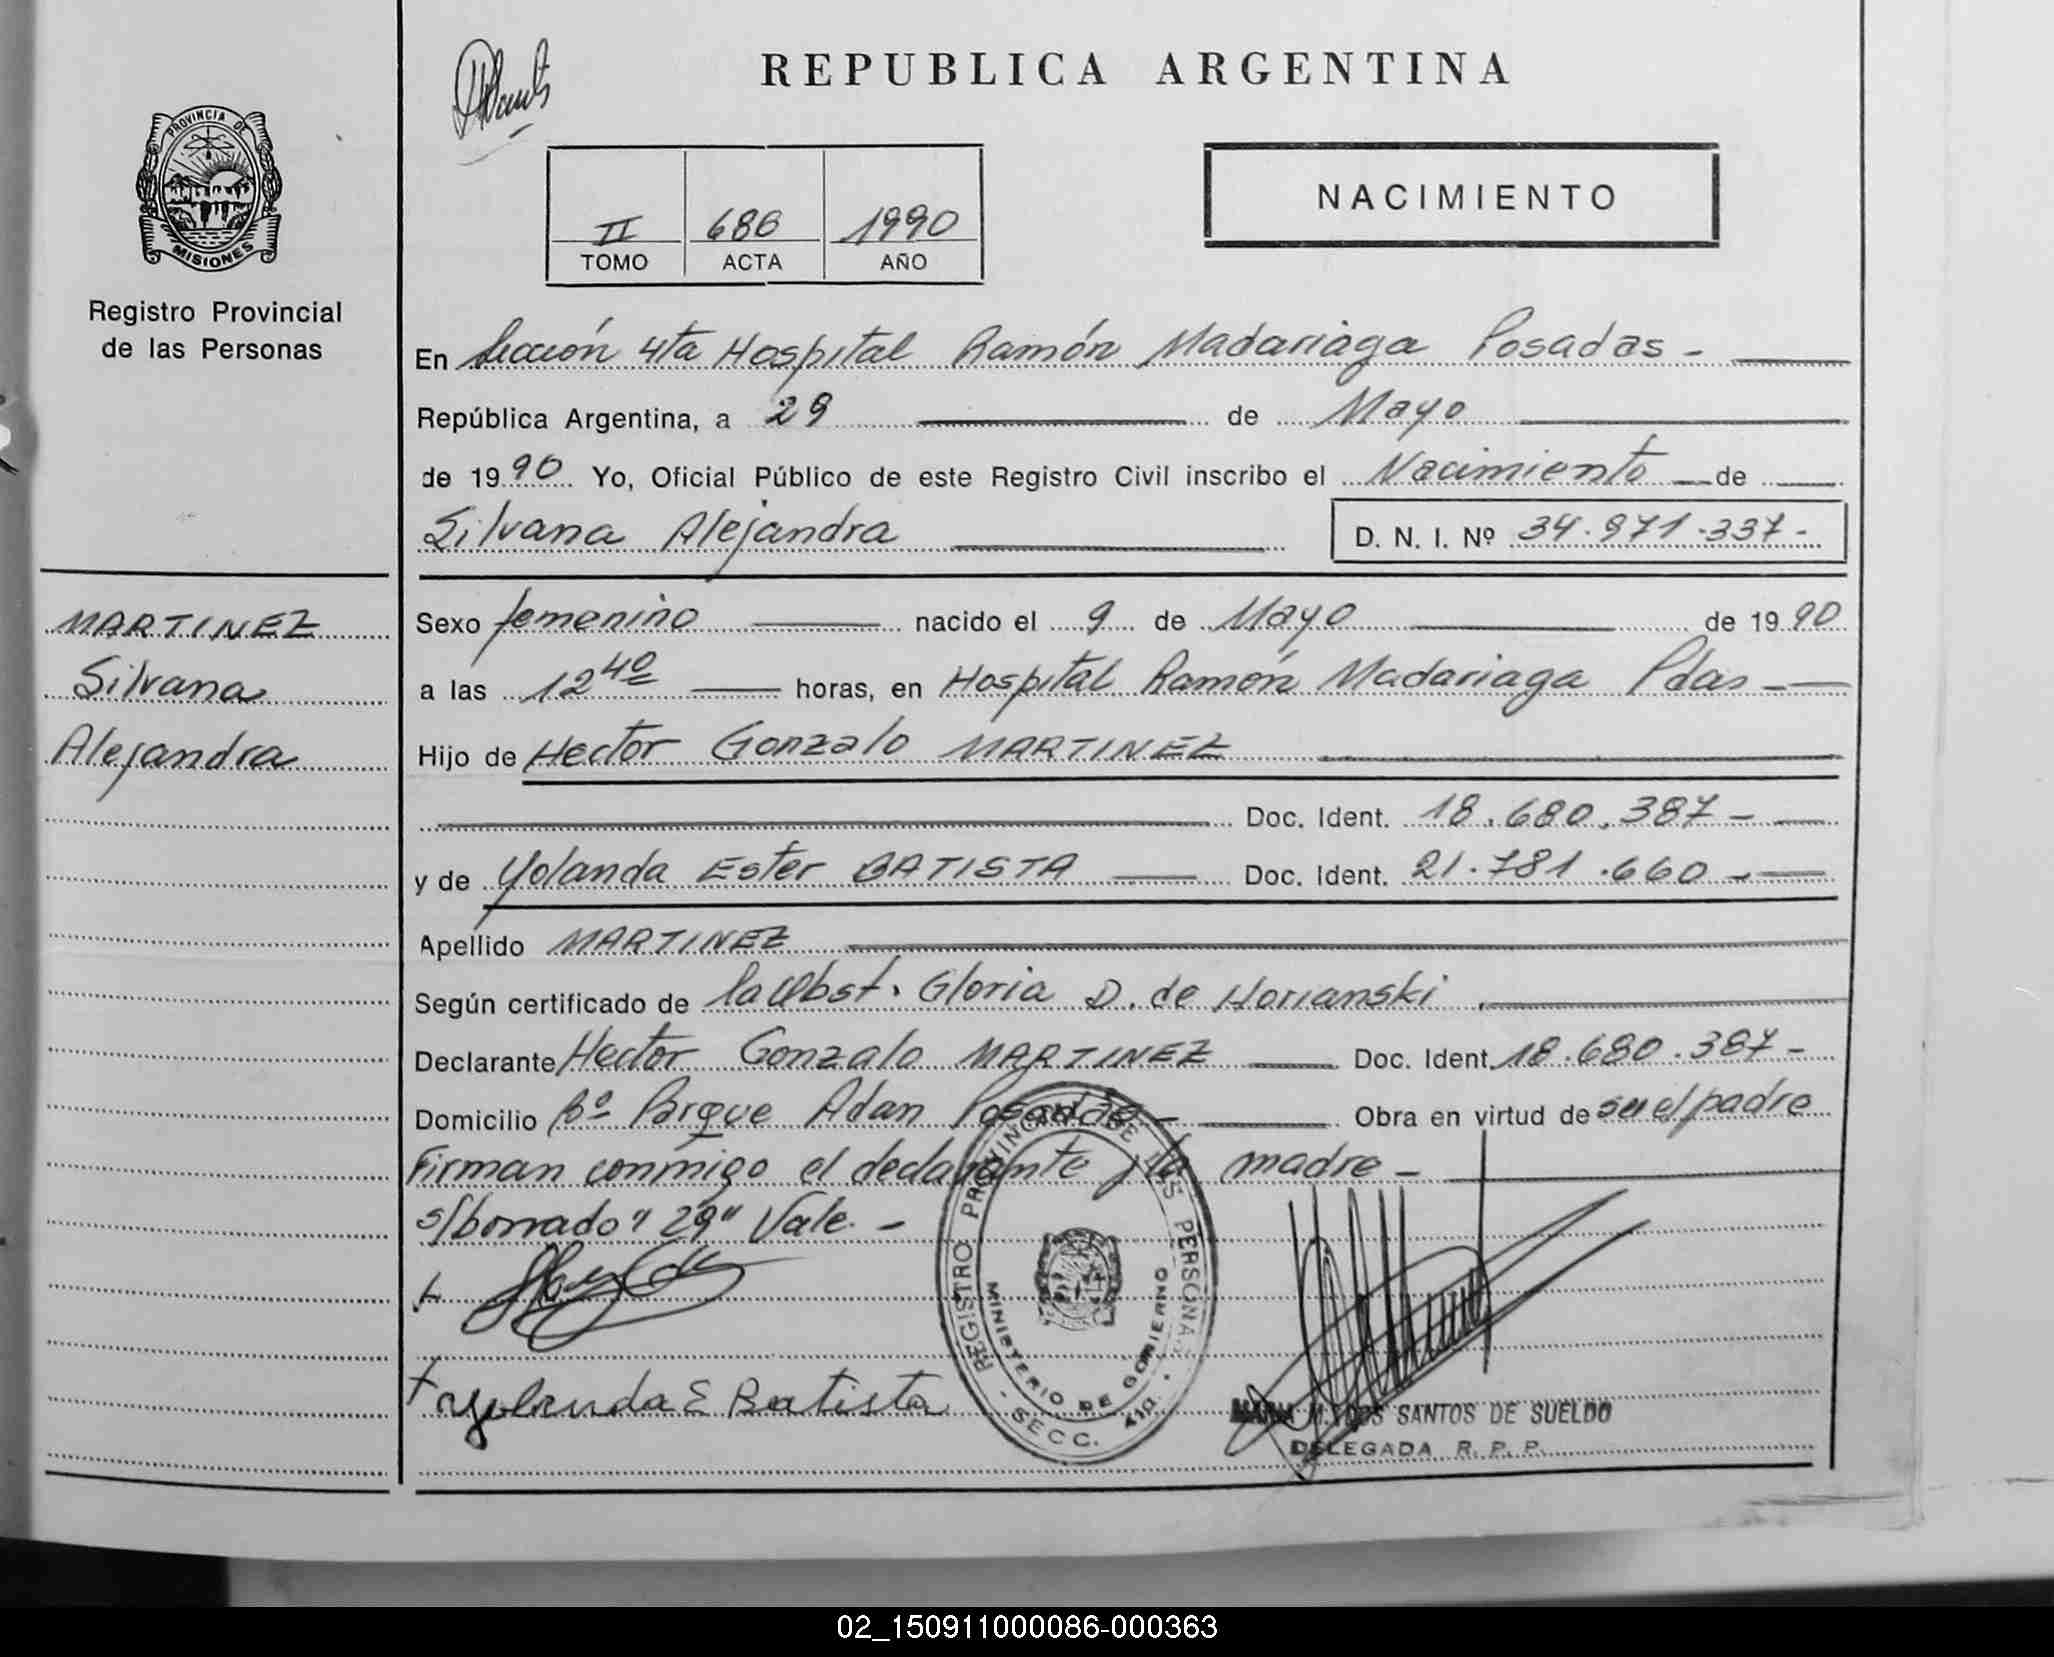 REPUBLICA ARGENTINA
PROVINCIA DE
MISIONES
Registro Provincial
de las Personas
NACIMIENTO
II 686 1990
TOMO ACTA AÑO
En Sección 4ta Hospital Ramón Madariaga Posadas -
República Argentina, a 29 de Mayo
de 1990 Yo, Oficial Público de este Registro Civil inscribo el Nacimiento de
Silvana Alejandra D. N. I. Nº 34.971.337-
MARTINEZ
Silvana
Alejandra
Sexo femenino nacido el 9 de Mayo de 1990
a las 12 40 horas, en Hospital Ramón Madariaga Pdas -
Hijo de Hector Gonzalo MARTINEZ
Doc. Ident. 18.680.387 -
y de Yolanda Ester BATISTA Doc. Ident. 21.781.660 -
Apellido MARTINEZ
Según certificado de la Obst. Gloria D. de Horianski
Declarante Hector Gonzalo MARTINEZ Doc. Ident. 18.680.387 -
Domicilio Bº Parque Adan Posadas - Obra en virtud de ser el padre
Firman conmigo el declarante y la madre -
s/borrado "29" Vale. -
Yolanda E Batista
REGISTRO PROVINCIAL DE LAS PERSONAS
MINISTERIO DE GOBIERNO
SECC. 4ta.
M. DOS SANTOS DE SUELDO
DELEGADA R. P. P.
02_150911000086-000363